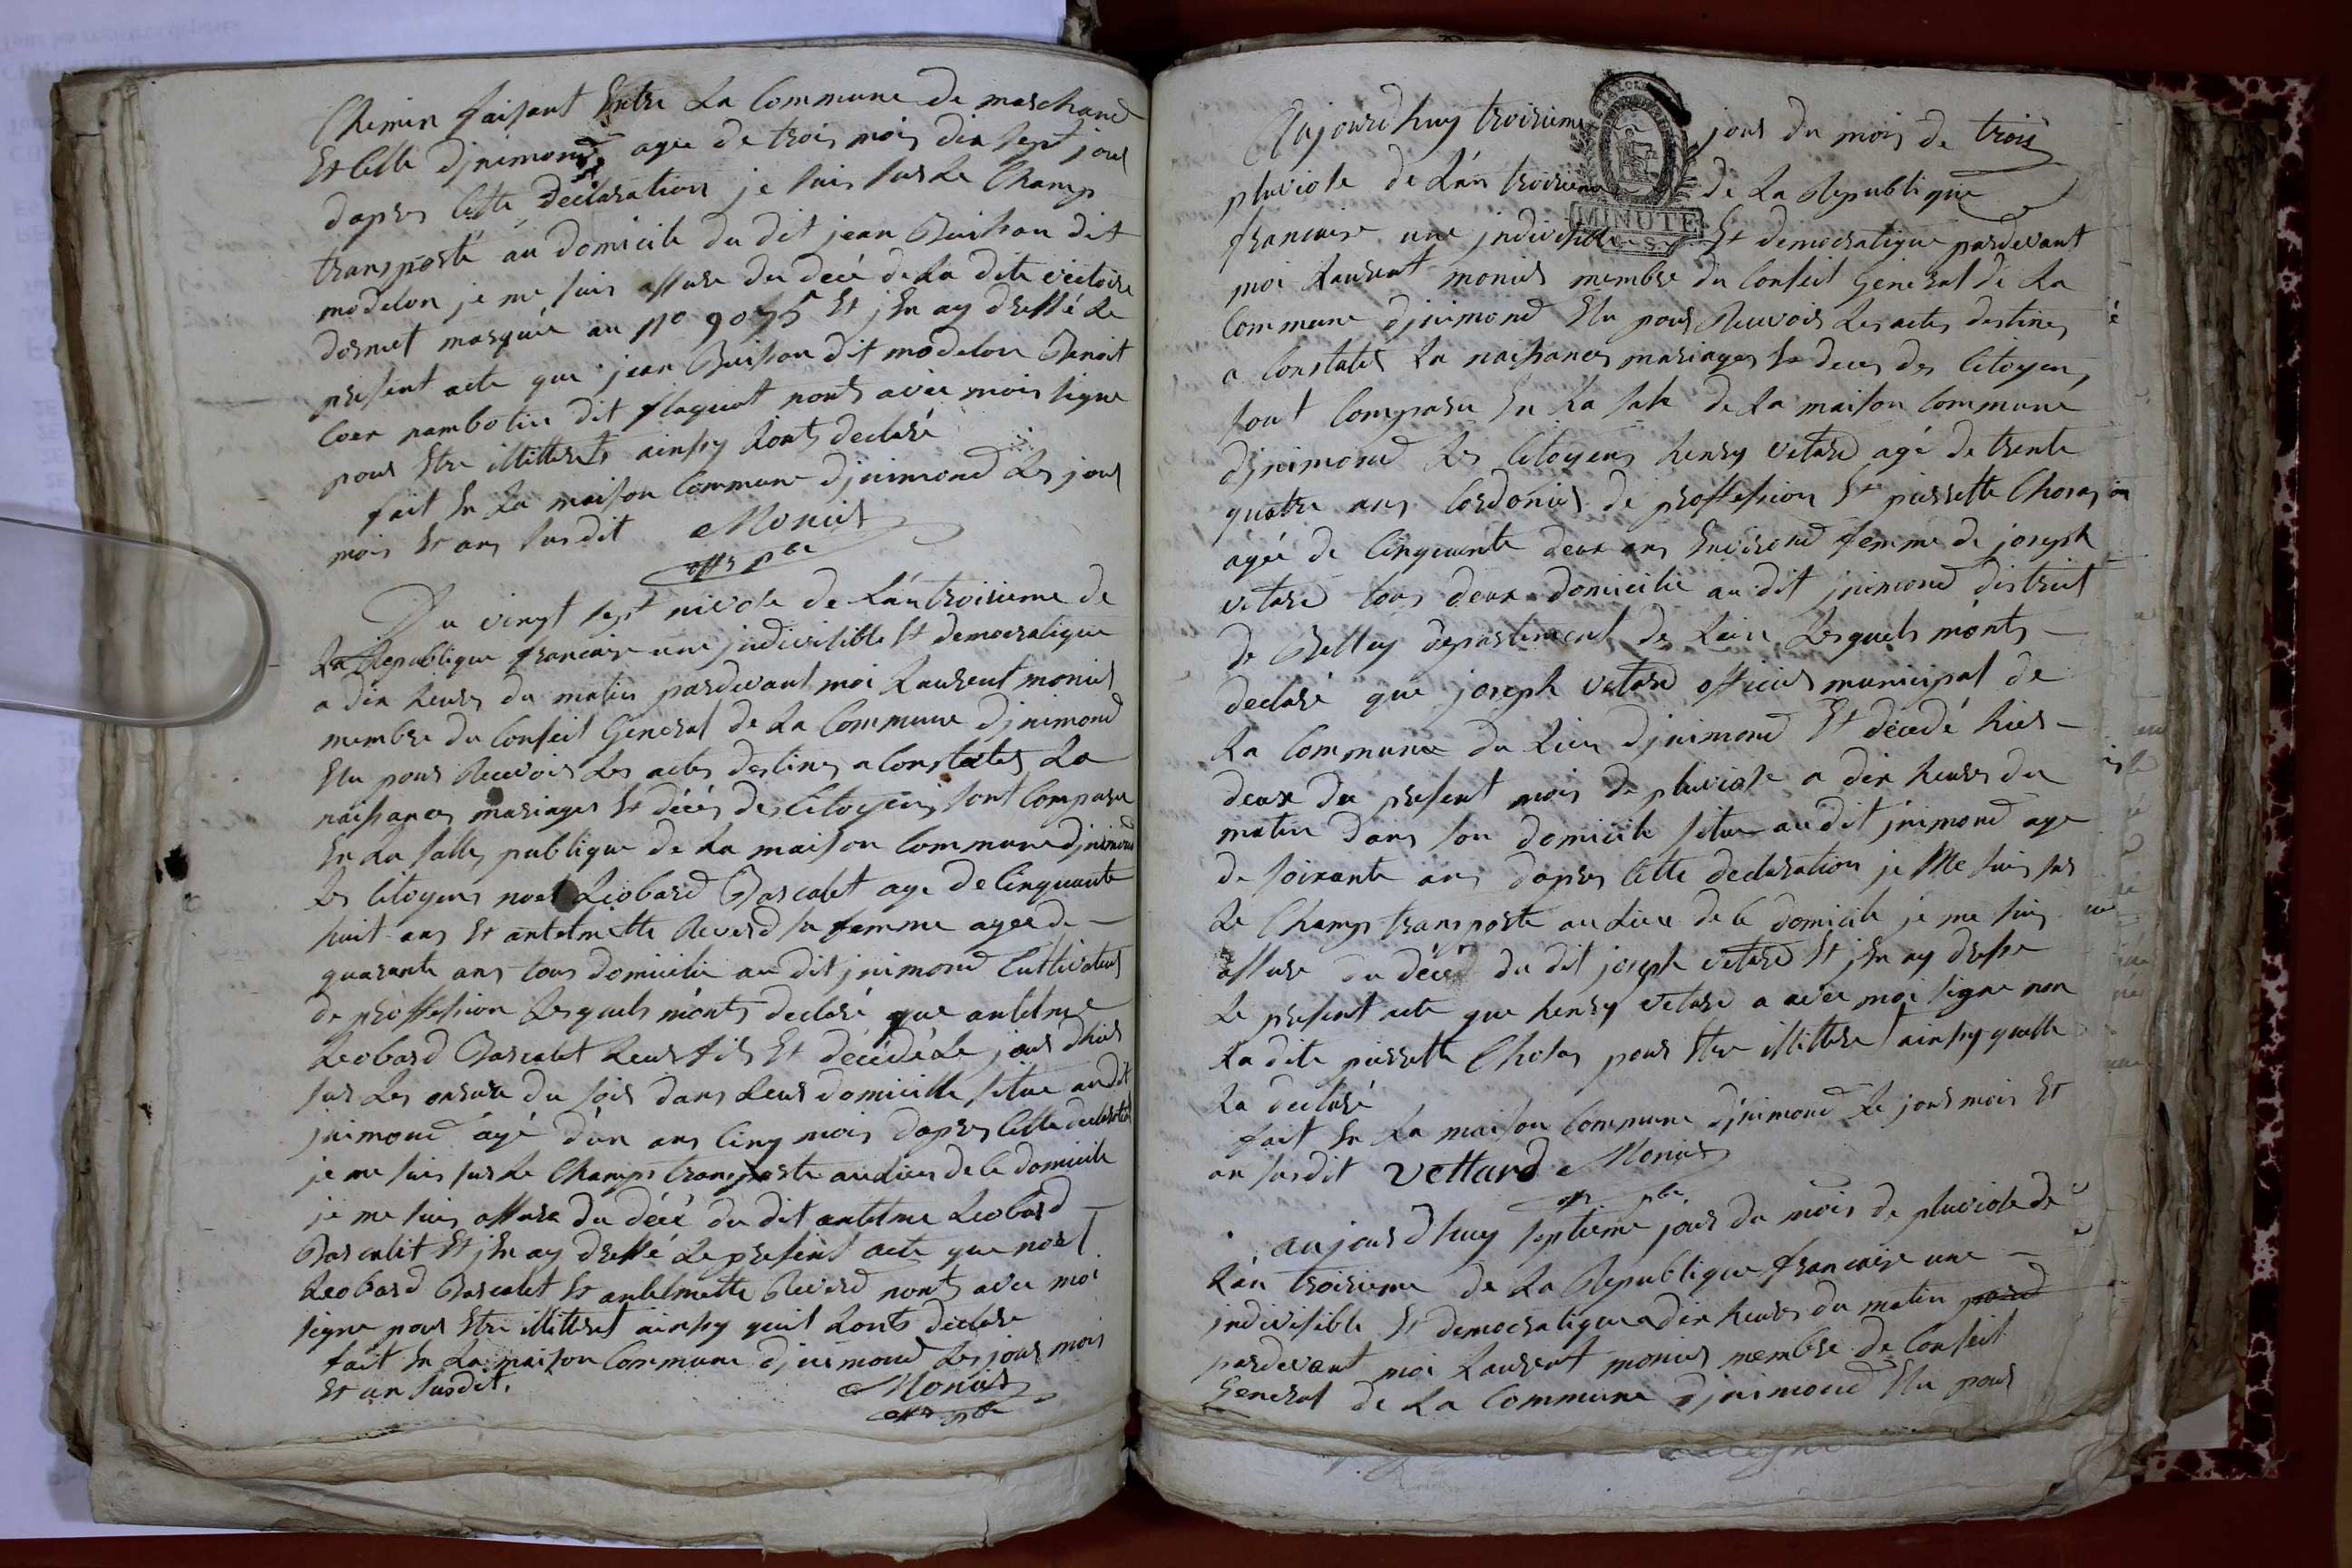 Chemin faisant Entre La Commune de marchand
Et Celle djnimond agee de trois mois dix sept jour
dapres Cette declaration je suis sur Le Champ
transporté au domicile du dit jean Buisson dit
modelon je me suis assure du decé de La dite victoire
dornet marquée au no 9075 Et jEn ay dressé Le
present acte que jean Buisson dit modelon Benoit
Coer nambotin dit flaquat nonts avec mois signe
pour Etre illitterets ainsy Lonts declaré
fait En La maison Commune djnimond Les jour
mois Et ans susdit Monier
offr pbc
Du vingt sept nivose de Lán troisieme de
La Republique francaise une jndivisible Et democratique
a dix heures du matin pardevant moi Laurent monier
membre du Conseil General de La Commune djnimond
Elu pour Recevoir Les actes destines a Constater La
naissances mariages Et décès des Citoyens sont Comparu
En La salle publique de La maison Commune djnimond
Les Citoyens noel Léobard Bascalet age de Cinquante
huit ans Et antelmette Reverd sa femme agee de
quarante ans tous domicilie au dit jnimond Cultivateur
de proffession Lesquels mónts declaré que antelme
Leobard Bascalet Leur fils Et décédé Le jour dhier
sur Les onzure du soir dans Leur domicille situe au dit
jnimond agé dún ans Cinq mois dapres Cette declaration
je me suis sur Le Champs transporte au Lieu de Ce domicile
je me suis assure du décé du dit antelme Leobard
Bascalit Et jEn ay dressé Le present acte que noel
Leobard Bascalet Et antelmette Reverd nonts avec moi
signe pour Etre illitteret ainsy quil Lonts declare
fait En La maison Commune djnimond Les jour mois
Et an susdit. Monier
offr pbc
Aujourdhuy troisieme jour du mois de trois
pluviose de Lán troisieme de La Republique
francaise une jndivisible Et democratique pardevant
moi Laurent monier membre du Conseil General de La
Commune djnimond Elu pour Recevoir Les actes destines
a Constater La naissances mariages Et deces des Citoyens
sont Comparu En La sale de La maison Commune
djnimond Les Citoyens henry vetard agé de trente
quatre ans Cordonier de proffession Et pierrette Choras
agée de Cinquante deux ans Environd femme de joseph
vetard tous deux domicilie au dit jnimond district
de Belley departement de Lain Lesquels mónts
declaré que joseph vetard officier municipal de
La Commune du Lieu djnimond Et décedé hier
deux du present mois de pluviose a dix heures du
matin dans son domicile situe au dit jnimond age
de soixante ans dapres Cette declaration je Me suis sur
Le Champ transporte au Lieu de Ce domicile je me suis
assure du décés du dit joseph vetard Et jEn ay dresse
Le present acte que henry vetard a avec moi signe non
La dite pierrette Choras pour Etre illittere ainsy quelle
La declaré
fait En La maison Commune djnimond Le jour mois Et
an susdit vettard Monier
offr pbc
aujourdhuy septieme jour du mois de pluviose de
Lán troisieme de La Republique francaise une
jndivisible Et democratique a dix heures du matin pard
pardevant moi Laurent monier membre de Conseil
General de La Commune djnimond Elu pour
MINUTE